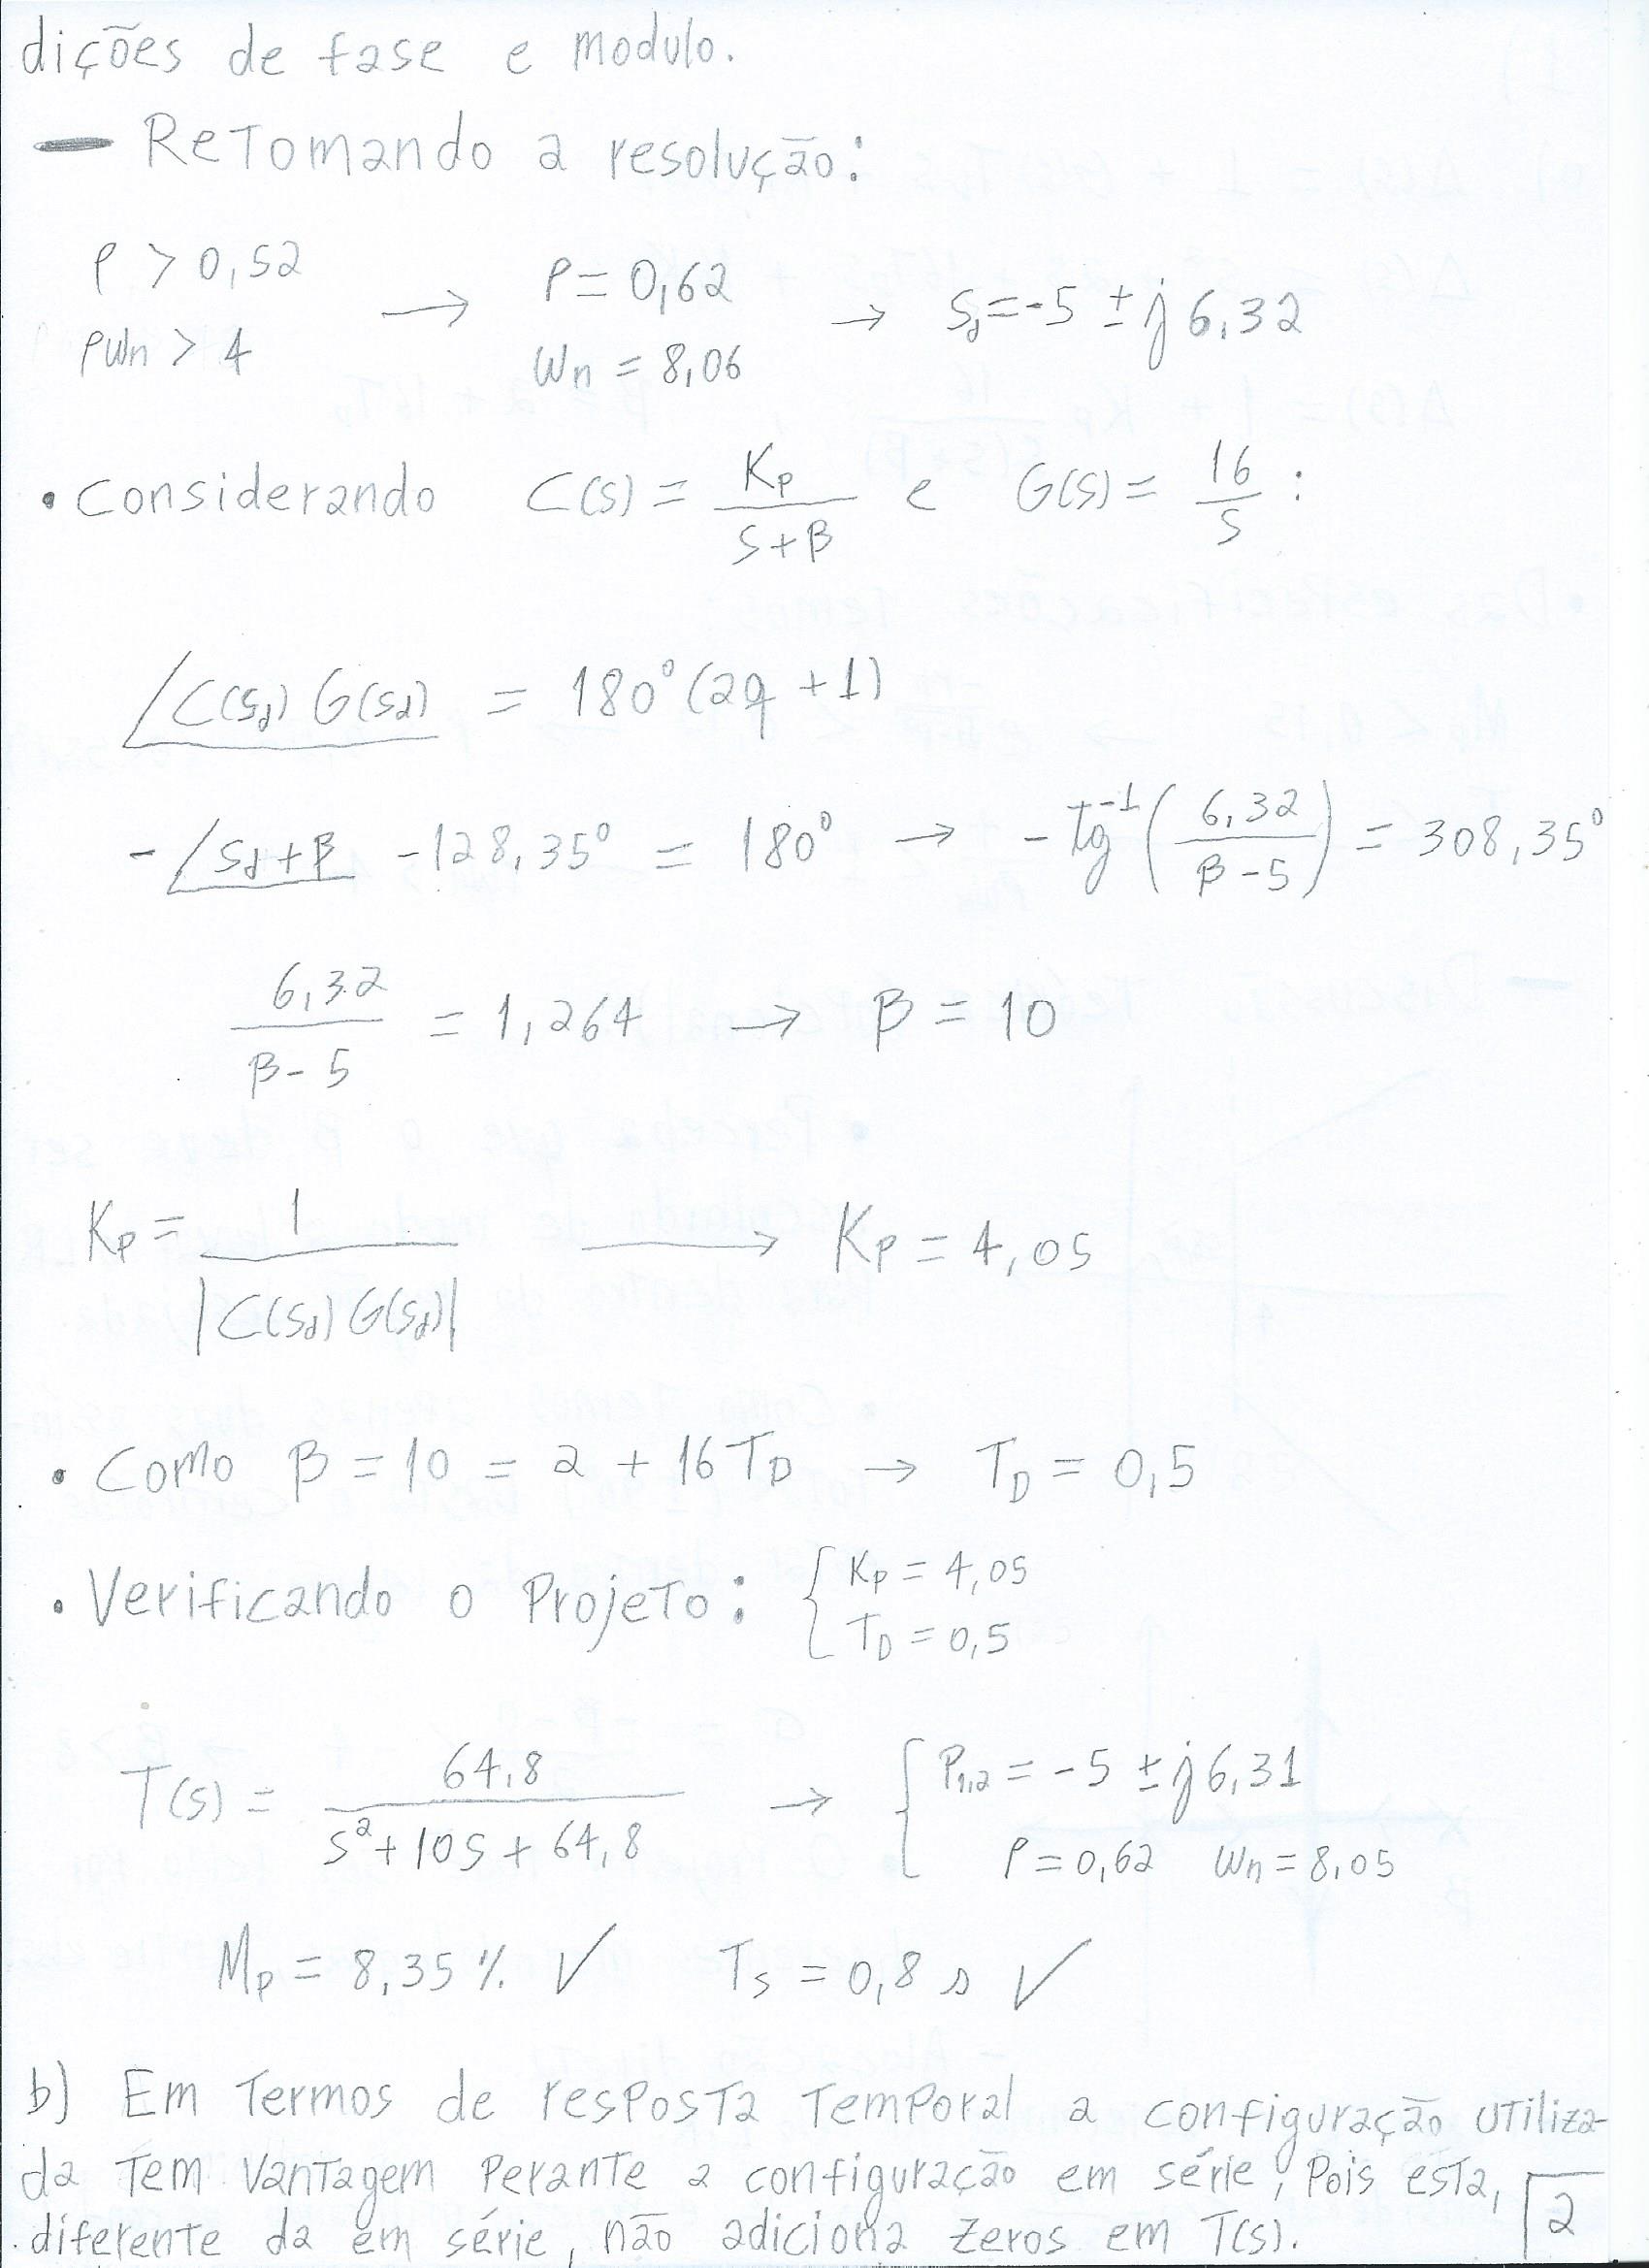 dições de fase e modulo.
— Retomando a resolução:
ρ > 0,52
ρωn > 4
→ ρ = 0,62
ωn = 8,06
→ Sd = -5 ± j 6,32
• Considerando C(s) = Kp / (S+β) e G(s) = 16 / S :
∠C(Sd) G(Sd) = 180° (2q + 1)
- ∠Sd+β - 128,35° = 180° → - tg⁻¹ ( 6,32 / (β-5) ) = 308,35°
6,32 / (β-5) = 1,264 → β = 10
Kp = 1 / |C(Sd) G(Sd)| → Kp = 4,05
• Como β = 10 = 2 + 16 TD → TD = 0,5
• Verificando o Projeto: { Kp = 4,05
TD = 0,5
T(s) = 64,8 / (s² + 10s + 64,8) → { P1,2 = -5 ± j 6,31
ρ = 0,62 ωn = 8,05
Mp = 8,35 % ✓ Ts = 0,8 s ✓
b) Em Termos de resposta Temporal a configuração utiliza-
da Tem vantagem perante a configuração em série, pois esta,
diferente da em série, não adiciona zeros em T(s).
2